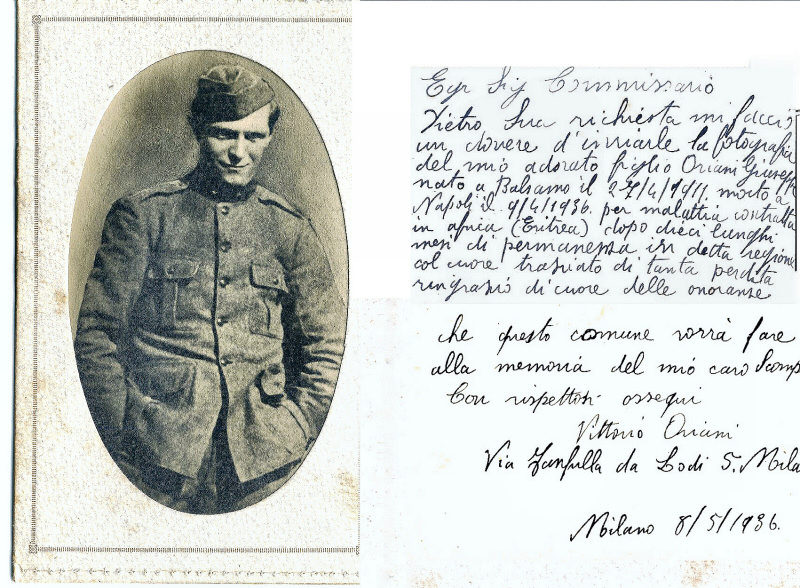 Egr Sig Commissario
Dietro Sua richiesta mi faccio
un dovere d'inviarle la fotografia
del mio adorato figlio Oriani Giuseppe
nato a Balsamo il 27/4/1911 morto a
Napoli il 9/4/1936. per malattia contratta
in africa (Eritrea) dopo dieci lunghi
mesi di permanenza in detta regione
col cuore straziato di tanta perdita
ringrazio di cuore delle onoranze
che questo comune vorrà fare
alla memoria del mio caro Scomp
Con rispettosi ossequi
Vittorio Oriani
Via Fanfulla da Lodi 5. Mila
Milano 8/5/1936.